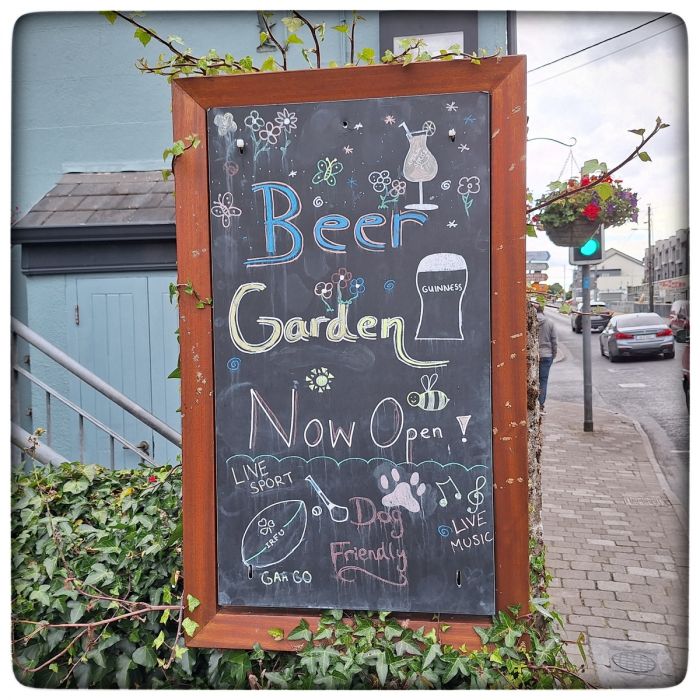 Beer
GUINNESS
Garden
Now Open!
LIVE
SPORT
IRFU
Dog
Friendly
GAA GO
LIVE
MUSIC